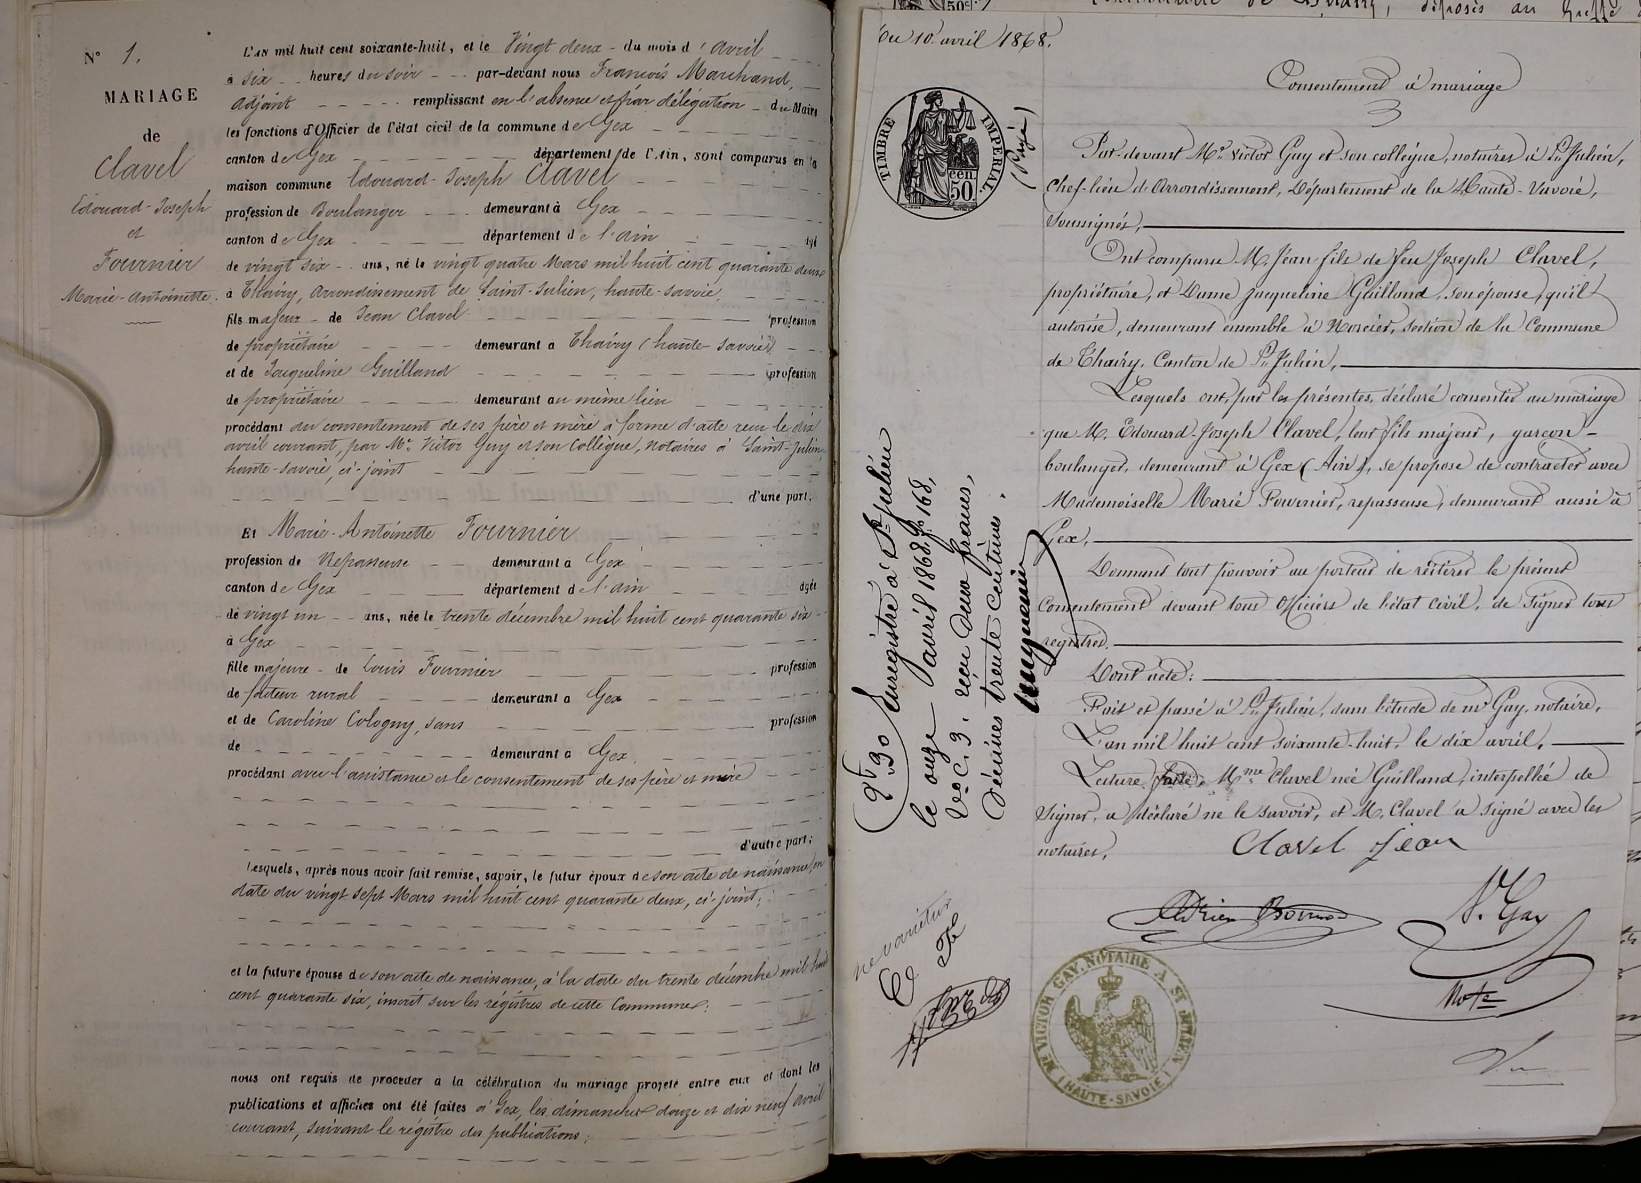 N° 1.
MARIAGE
de
Clavel
Edouard-Joseph
et
Fournier
Marie-Antoinette.
L'AN mil huit cent soixante-huit, et le Vingt deux - du mois d'avril
à six heures du soir par-devant nous François Marchand,
adjoint remplissant en l'absence et par délégation du Maire
les fonctions d'Officier de l'état civil de la commune de Gex
canton de Gex département de l'Ain, sont comparus en la
maison commune Edouard-Joseph Clavel
profession de Boulanger demeurant à Gex
canton de Gex département de l'ain âgé
de vingt six ans, né le vingt quatre Mars mil huit cent quarante deux
à Thairy, arrondissement de Saint-Julien, haute-savoie,
fils majeur de Jean Clavel profession
de propriétaire demeurant à Thairy (haute-savoie)
et de Jacqueline Guilland profession
de propriétaire demeurant au même lieu
procédant du consentement de ses père et mère à forme d'acte reçu le dix
avril courant, par Me Victor Guy et son Collègue, notaires à Saint-Julien,
haute-savoie, ci-joint
d'une part.
Et Marie-Antoinette Fournier
profession de Repasseuse demeurant à Gex
canton de Gex département de l'ain âgée
de vingt un ans, née le trente décembre mil huit cent quarante six
à Gex
fille majeure - de Louis Fournier profession
de facteur rural demeurant à Gex
et de Caroline Cologny, sans profession
de demeurant à Gex,
procédant avec l'assistance et le consentement de ses père et mère
d'autre part;
Lesquels, après nous avoir fait remise, savoir, le futur époux de son acte de naissance, en
date du vingt sept Mars mil huit cent quarante deux, ci-joint;
et la future épouse de son acte de naissance, à la date du trente décembre mil huit
cent quarante six, inscrit sur les régistres de cette Commune;
nous ont requis de procéder à la célébration du mariage projeté entre eux et dont les
publications et affiches ont été faites à Gex, les dimanches douze et dix neuf avril
courant, suivant le régistre des publications;
Du 10 avril 1868.
Consentement à mariage
TIMBRE IMPERIAL
50 cen.
Par-devant Me Victor Gay et son collègue, notaires à St Julien,
Chef-lieu d'Arrondissement, Département de la Haute-Savoie,
soussignés,
Ont comparu M. Jean fils de feu Joseph Clavel,
propriétaire, et Dame Jacqueline Guilland, son épouse, qu'il
autorise, demeurant ensemble à Norcier, section de la Commune
de Thairy, Canton de St Julien,
Lesquels ont, par les présentes, déclaré consentir au mariage
que M. Edouard-Joseph Clavel, leur fils majeur, garçon-
boulanger, demeurant à Gex (Ain), se propose de contracter avec
Mademoiselle Marie Fournier, repasseuse, demeurant aussi à
Gex,
Donnant tout pouvoir au porteur de réitérer le présent
Consentement devant tous Officiers de l'état civil, de signer tous
registres.
Dont acte:
Fait et passé à St Julien, dans l'étude de me Gay, notaire,
L'an mil huit cent soixante-huit, le dix avril,
Lecture faite, Mme Clavel née Guilland, interpellée de
signer, a déclaré ne le savoir, et M. Clavel a signé avec les
notaires,
Clavel Jean
V. Gay
Note
Vu
Enregistré à St Julien
le onze avril 1868, fo 168,
Vo C. 3. reçu deux francs,
Décimes trente centimes.
ne varietur
C F
Me VICTOR GAY, NOTAIRE A ST JULIEN
(HAUTE-SAVOIE)